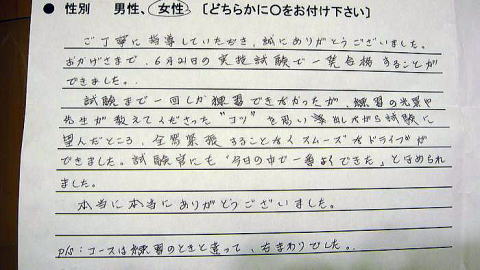 ● 性別　男性、女性　［どちらかに○をお付け下さい］
ご丁寧に指導していただき、誠にありがとうございました。
おかげさまで、6月21日の実技試験で一発合格することが
できました。
試験まで一回しか練習できなかったが、練習の光景や
先生が教えてくださった"コツ"を思い出しながら試験に
望んだところ、全然緊張することなくスムーズなドライブが
できました。試験官にも「今日の中で一番よくできた」とほめられ
ました。
本当に本当にありがとうございました。
P/S：コースは練習のときと違って、右まわりでした。